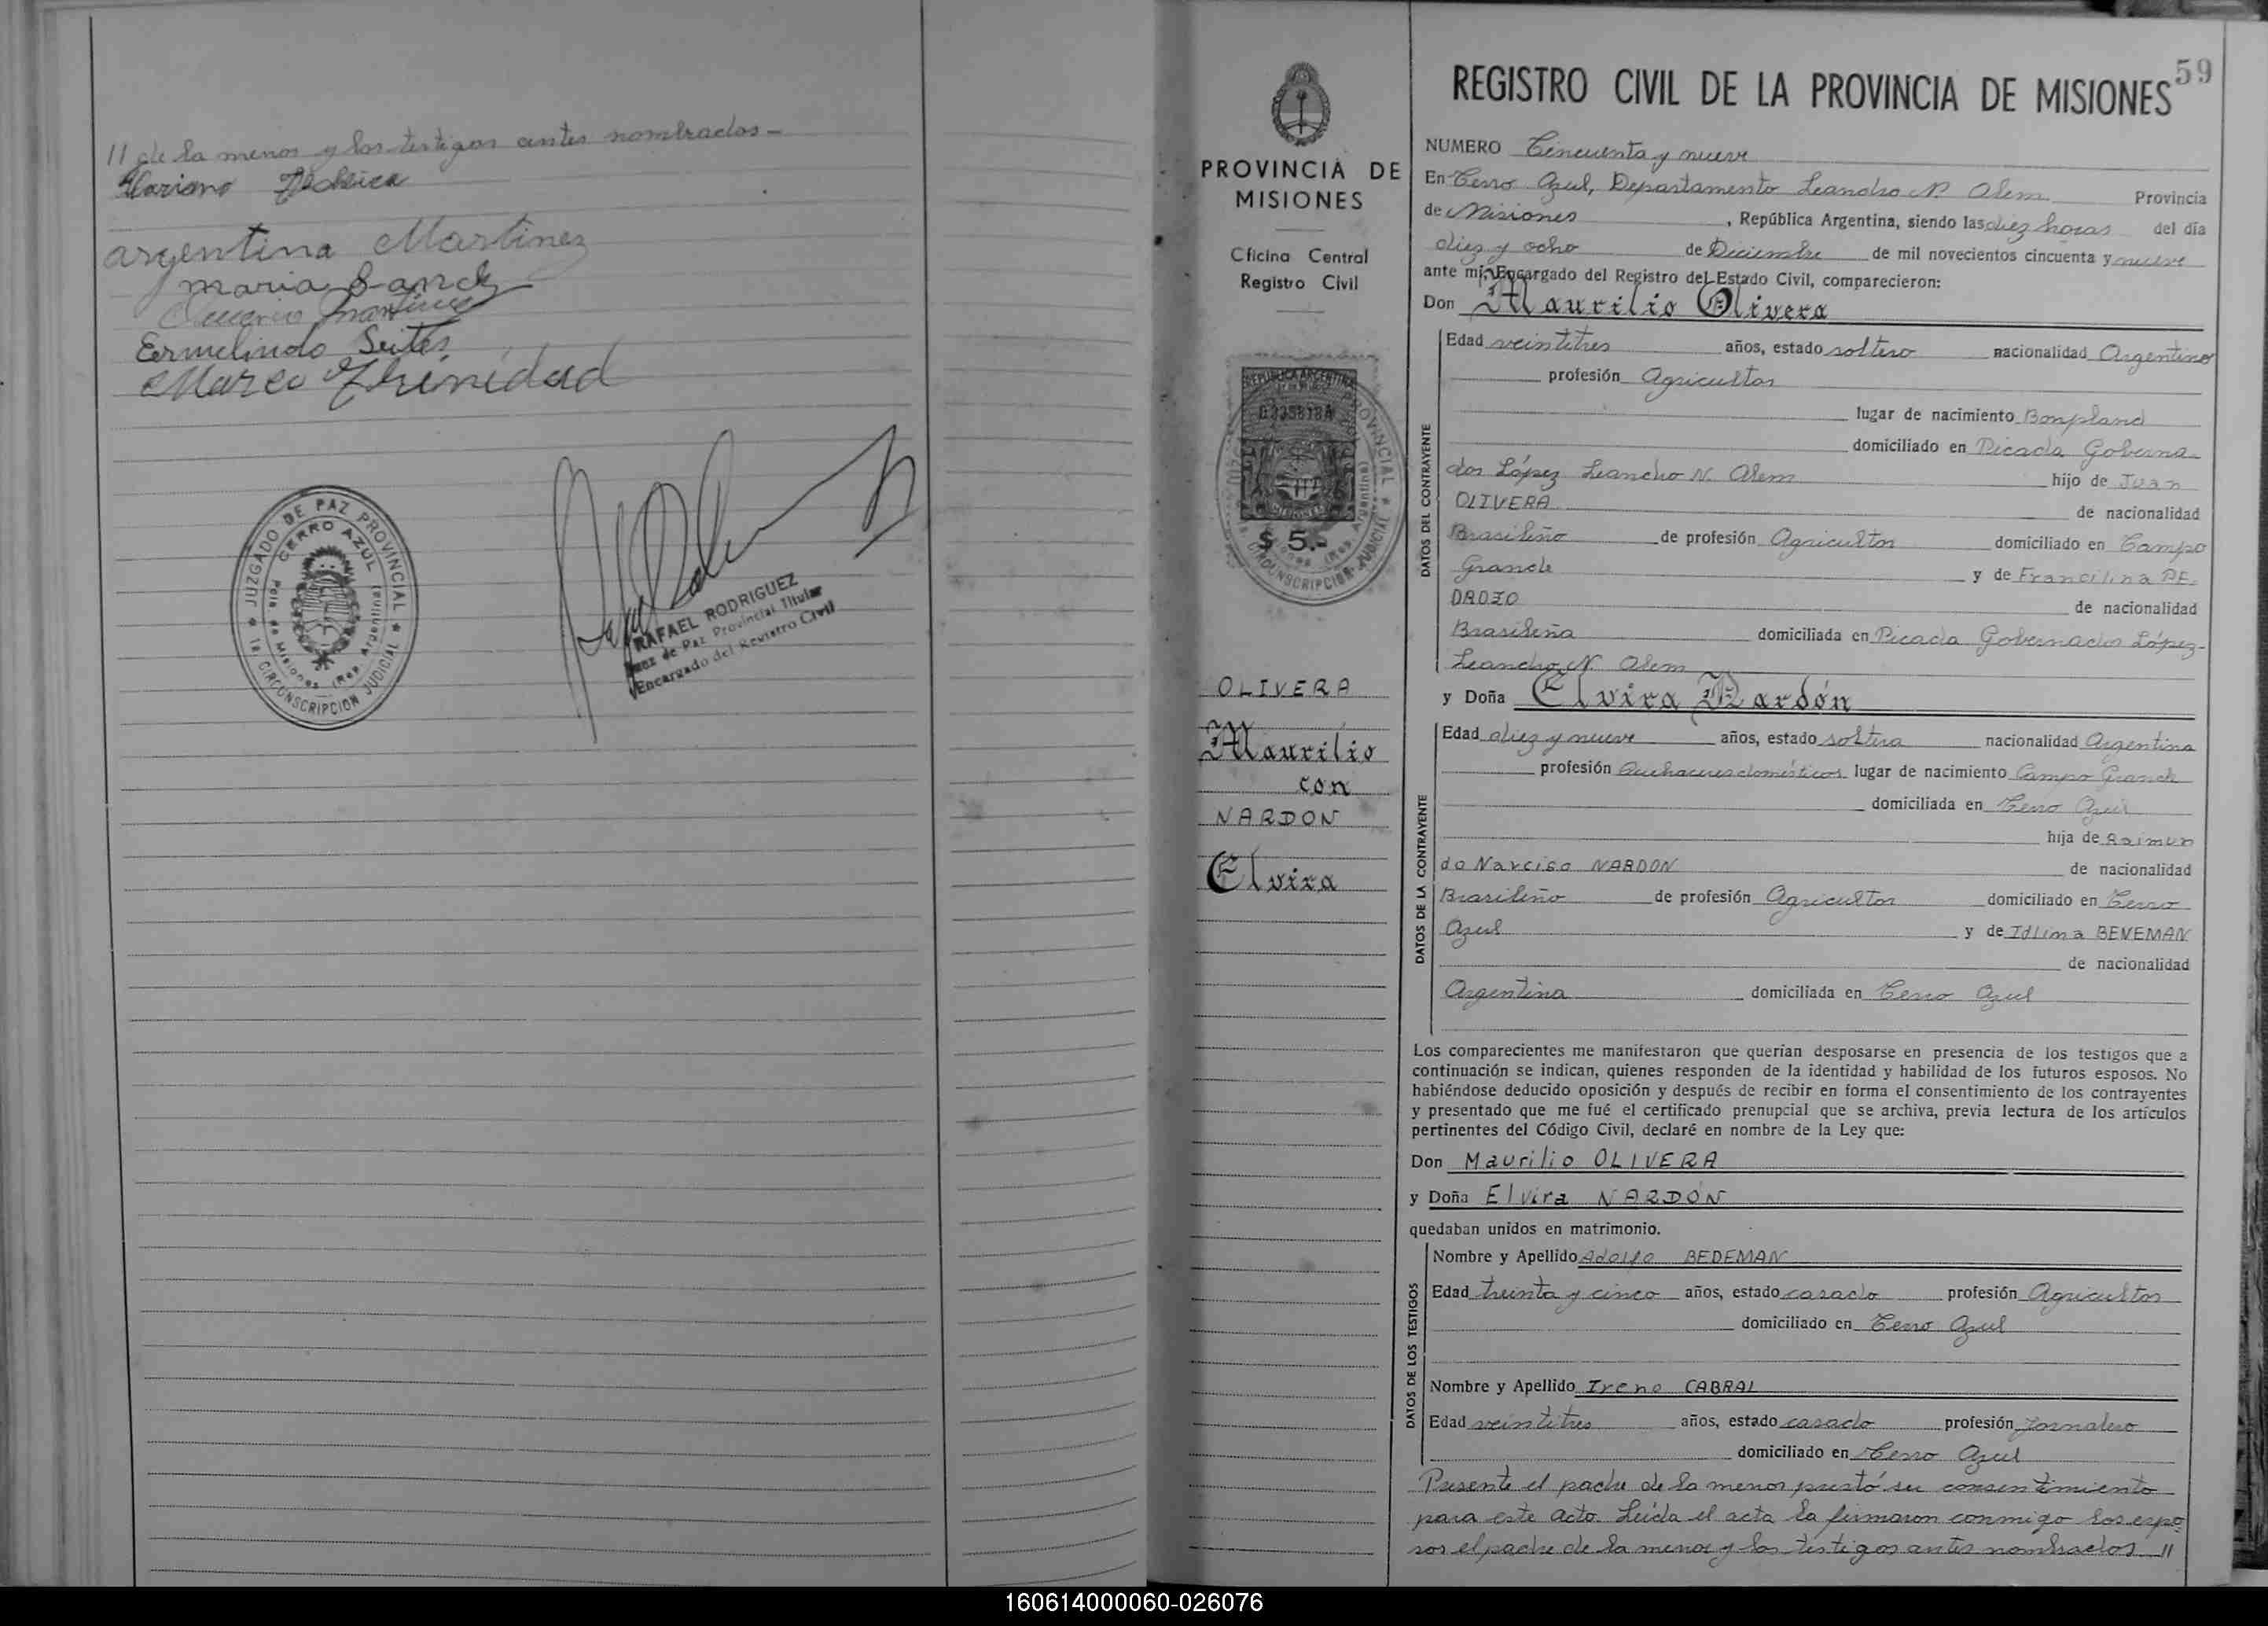 // de la menor y los testigos antes nombrados-
Mariano
argentina Martinez
maria
Martinez
Ermelindo Seites
Marco Trinidad
JUZGADO DE PAZ PROVINCIAL
CERRO AZUL
Pcia. de Misiones (Rep. Argentina)
1a. CIRCUNSCRIPCION JUDICIAL
RAFAEL RODRIGUEZ
Juez de Paz Provincial Titular
Encargado del Registro Civil
59
PROVINCIA DE
MISIONES
Oficina Central
Registro Civil
REPUBLICA ARGENTINA
$ 5.-
CIRCUNSCRIPCION JUDICIAL
OLIVERA
Maurilio
con
NARDON
Elvira
REGISTRO CIVIL DE LA PROVINCIA DE MISIONES
NUMERO Cincuenta y nueve
En Cerro Azul, Departamento Leandro N. Alem Provincia
de Misiones, República Argentina, siendo las diez horas del día
diez y ocho de Diciembre de mil novecientos cincuenta y nueve
ante mí, Encargado del Registro del Estado Civil, comparecieron:
Don Maurilio Olivera
DATOS DEL CONTRAYENTE
Edad veintitres años, estado soltero nacionalidad Argentino
profesión Agricultor
lugar de nacimiento Bonpland
domiciliado en Picada Goberna-
dor López Leandro N. Alem hijo de Juan
OLIVERA de nacionalidad
Brasileño de profesión Agricultor domiciliado en Campo
Grande y de Francilina PE-
DROZO de nacionalidad
Brasileña domiciliada en Picada Gobernador López-
Leandro N. Alem
y Doña Elvira Nardón
DATOS DE LA CONTRAYENTE
Edad diez y nueve años, estado soltera nacionalidad Argentina
profesión Quehaceres domésticos lugar de nacimiento Campo Grande
domiciliada en Cerro Azul
hija de Raimun
do Narciso NARDON de nacionalidad
Brasileño de profesión Agricultor domiciliado en Cerro
Azul y de Idlima BEVEMAN
de nacionalidad
Argentina domiciliada en Cerro Azul
Los comparecientes me manifestaron que querían desposarse en presencia de los testigos que a
continuación se indican, quienes responden de la identidad y habilidad de los futuros esposos. No
habiéndose deducido oposición y después de recibir en forma el consentimiento de los contrayentes
y presentado que me fué el certificado prenupcial que se archiva, previa lectura de los artículos
pertinentes del Código Civil, declaré en nombre de la Ley que:
Don Maurilio OLIVERA
y Doña Elvira NARDÓN
quedaban unidos en matrimonio.
DATOS DE LOS TESTIGOS
Nombre y Apellido Adolfo BEDEMAN
Edad treinta y cinco años, estado casado profesión Agricultor
domiciliado en Cerro Azul
Nombre y Apellido Ireno CABRAL
Edad veintitres años, estado casado profesión Jornalero
domiciliado en Cerro Azul
Presente el padre de la menor prestó su consentimiento
para este acto. Leída el acta la firmaron conmigo los espo-
sos el padre de la menor y los testigos antes nombrados //
160614000060-026076